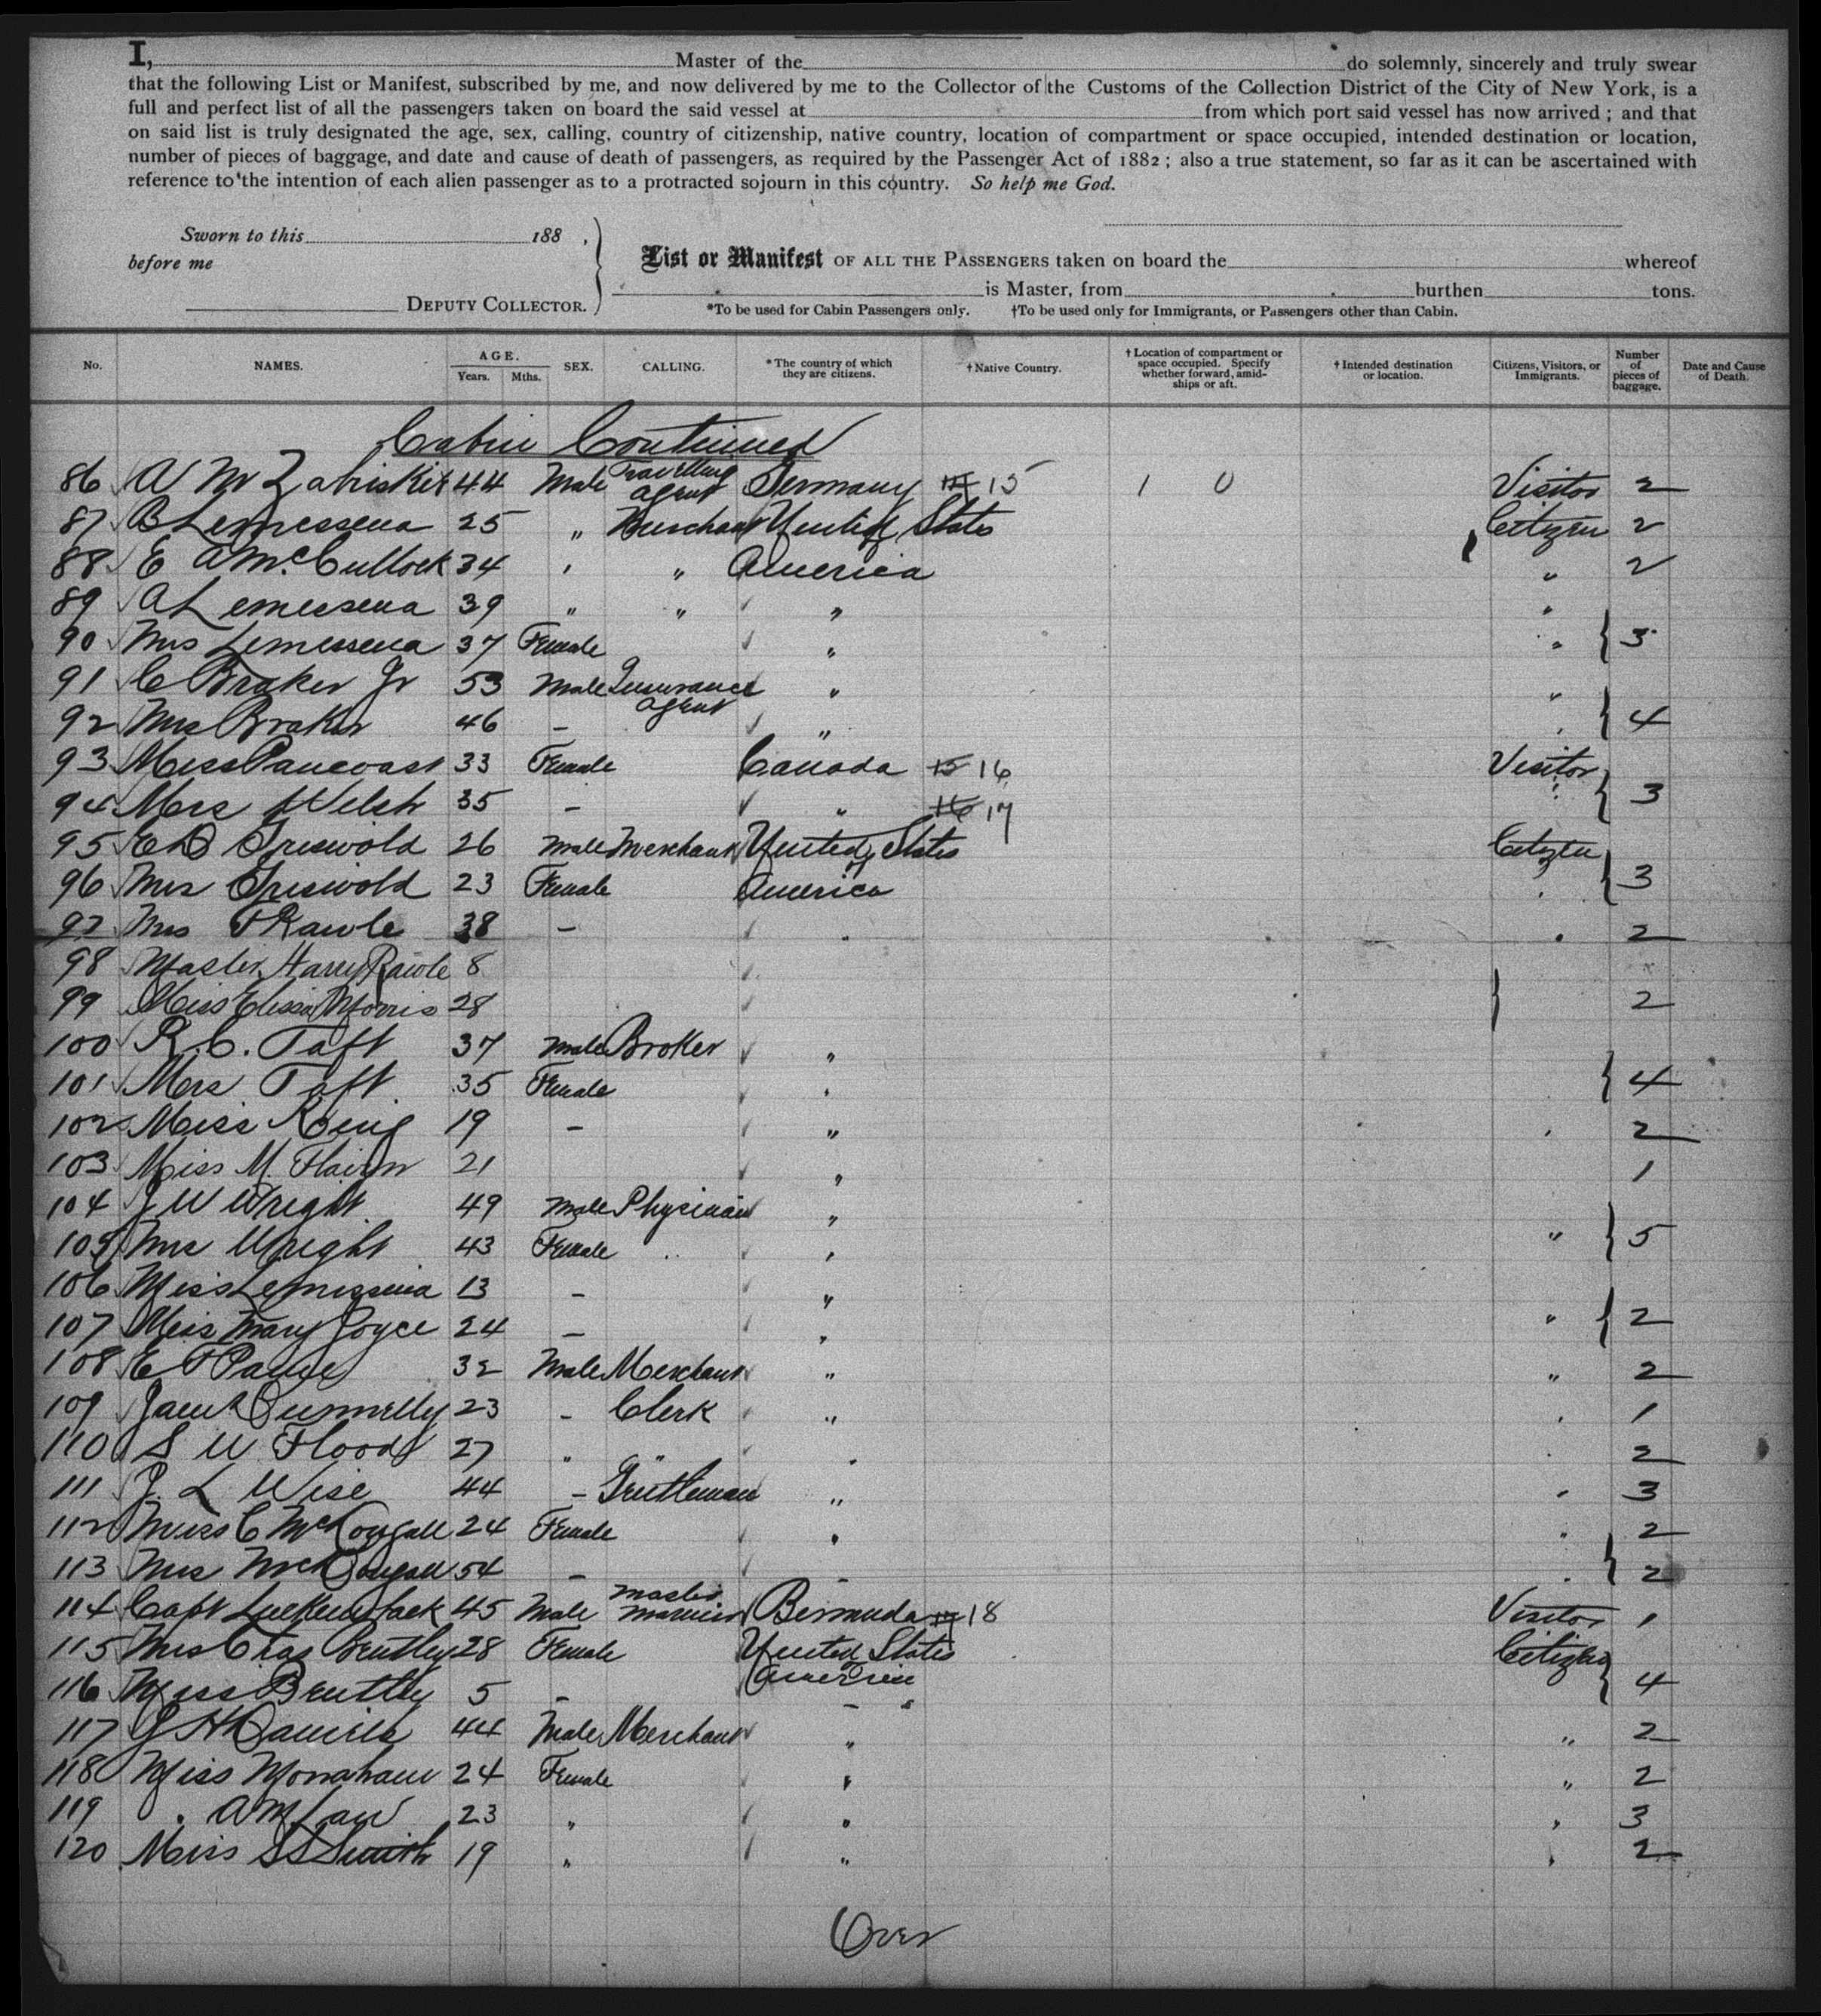 I, Master of the do solemnly, sincerely and truly swear
that the following List or Manifest, subscribed by me, and now delivered by me to the Collector of the Customs of the Collection District of the City of New York, is a
full and perfect list of all the passengers taken on board the said vessel at from which port said vessel has now arrived ; and that
on said list is truly designated the age, sex, calling, country of citizenship, native country, location of compartment or space occupied, intended destination or location,
number of pieces of baggage, and date and cause of death of passengers, as required by the Passenger Act of 1882 ; also a true statement, so far as it can be ascertained with
reference to the intention of each alien passenger as to a protracted sojourn in this country. So help me God.
Sworn to this 188 ,
before me
DEPUTY COLLECTOR.
List or Manifest OF ALL THE PASSENGERS taken on board the whereof
is Master, from burthen tons.
*To be used for Cabin Passengers only. †To be used only for Immigrants, or Passengers other than Cabin.
No. NAMES. AGE. Years. Mths. SEX. CALLING. *The country of which they are citizens. †Native Country. †Location of compartment or space occupied. Specify whether forward, amidships or aft. †Intended destination or location. Citizens, Visitors, or Immigrants. Number of pieces of baggage. Date and Cause of Death.
Cabin Continued
86 A M Zabriskie 44 Male Travelling agent Germany 15 1 0 Visitor 2
87 B Lemessena 25 " Merchant United States Citizen 2
88 E A McCullock 34 " " America " 2
89 A Lemessena 39 " " " "
90 Mrs Lemessena 37 Female " " 3
91 C Braker Jr 53 Male Insurance agent " "
92 Mrs Braker 46 - " " 4
93 Miss Pancoast 33 Female Canada 15 16 Visitor
94 Mrs Welsh 35 - " 16 17 " 3
95 E D Griswold 26 Male Merchant United States Citizen
96 Mrs Griswold 23 Female America " 3
97 Mrs F Rawle 38 - " " 2
98 Master Harry Rawle 8
99 Miss Morris 28 2
100 R. C. Taft 37 Male Broker "
101 Mrs Taft 35 Female " 4
102 Miss 19 - " " 2
103 Miss M. 21 " 1
104 J W Wright 49 Male Physician "
105 Mrs Wright 43 Female " " 5
106 Miss Lemessena 13 - "
107 Miss Mary Joyce 24 - " " 2
108 E F 32 Male Merchant " " 2
109 Donnelly 23 - Clerk " " 1
110 S W Flood 27 " " " " 2
111 J. L Wise 44 - Gentleman " " 3
112 Miss C McDougall 24 Female " " 2
113 Mrs McDougall 54 - - " 2
114 Capt Luckenback 45 Male Master mariner Bermuda 18 Visitor 1
115 Mrs Chas Bentley 28 Female United States Citizen
116 Miss Bentley 5 - America 4
117 J H Daniels 44 Male Merchant " " 2
118 Miss Monahan 24 Female " " 2
119 " A M Law 23 " " " 3
120 Miss S S Smith 19 " " " 2
Over